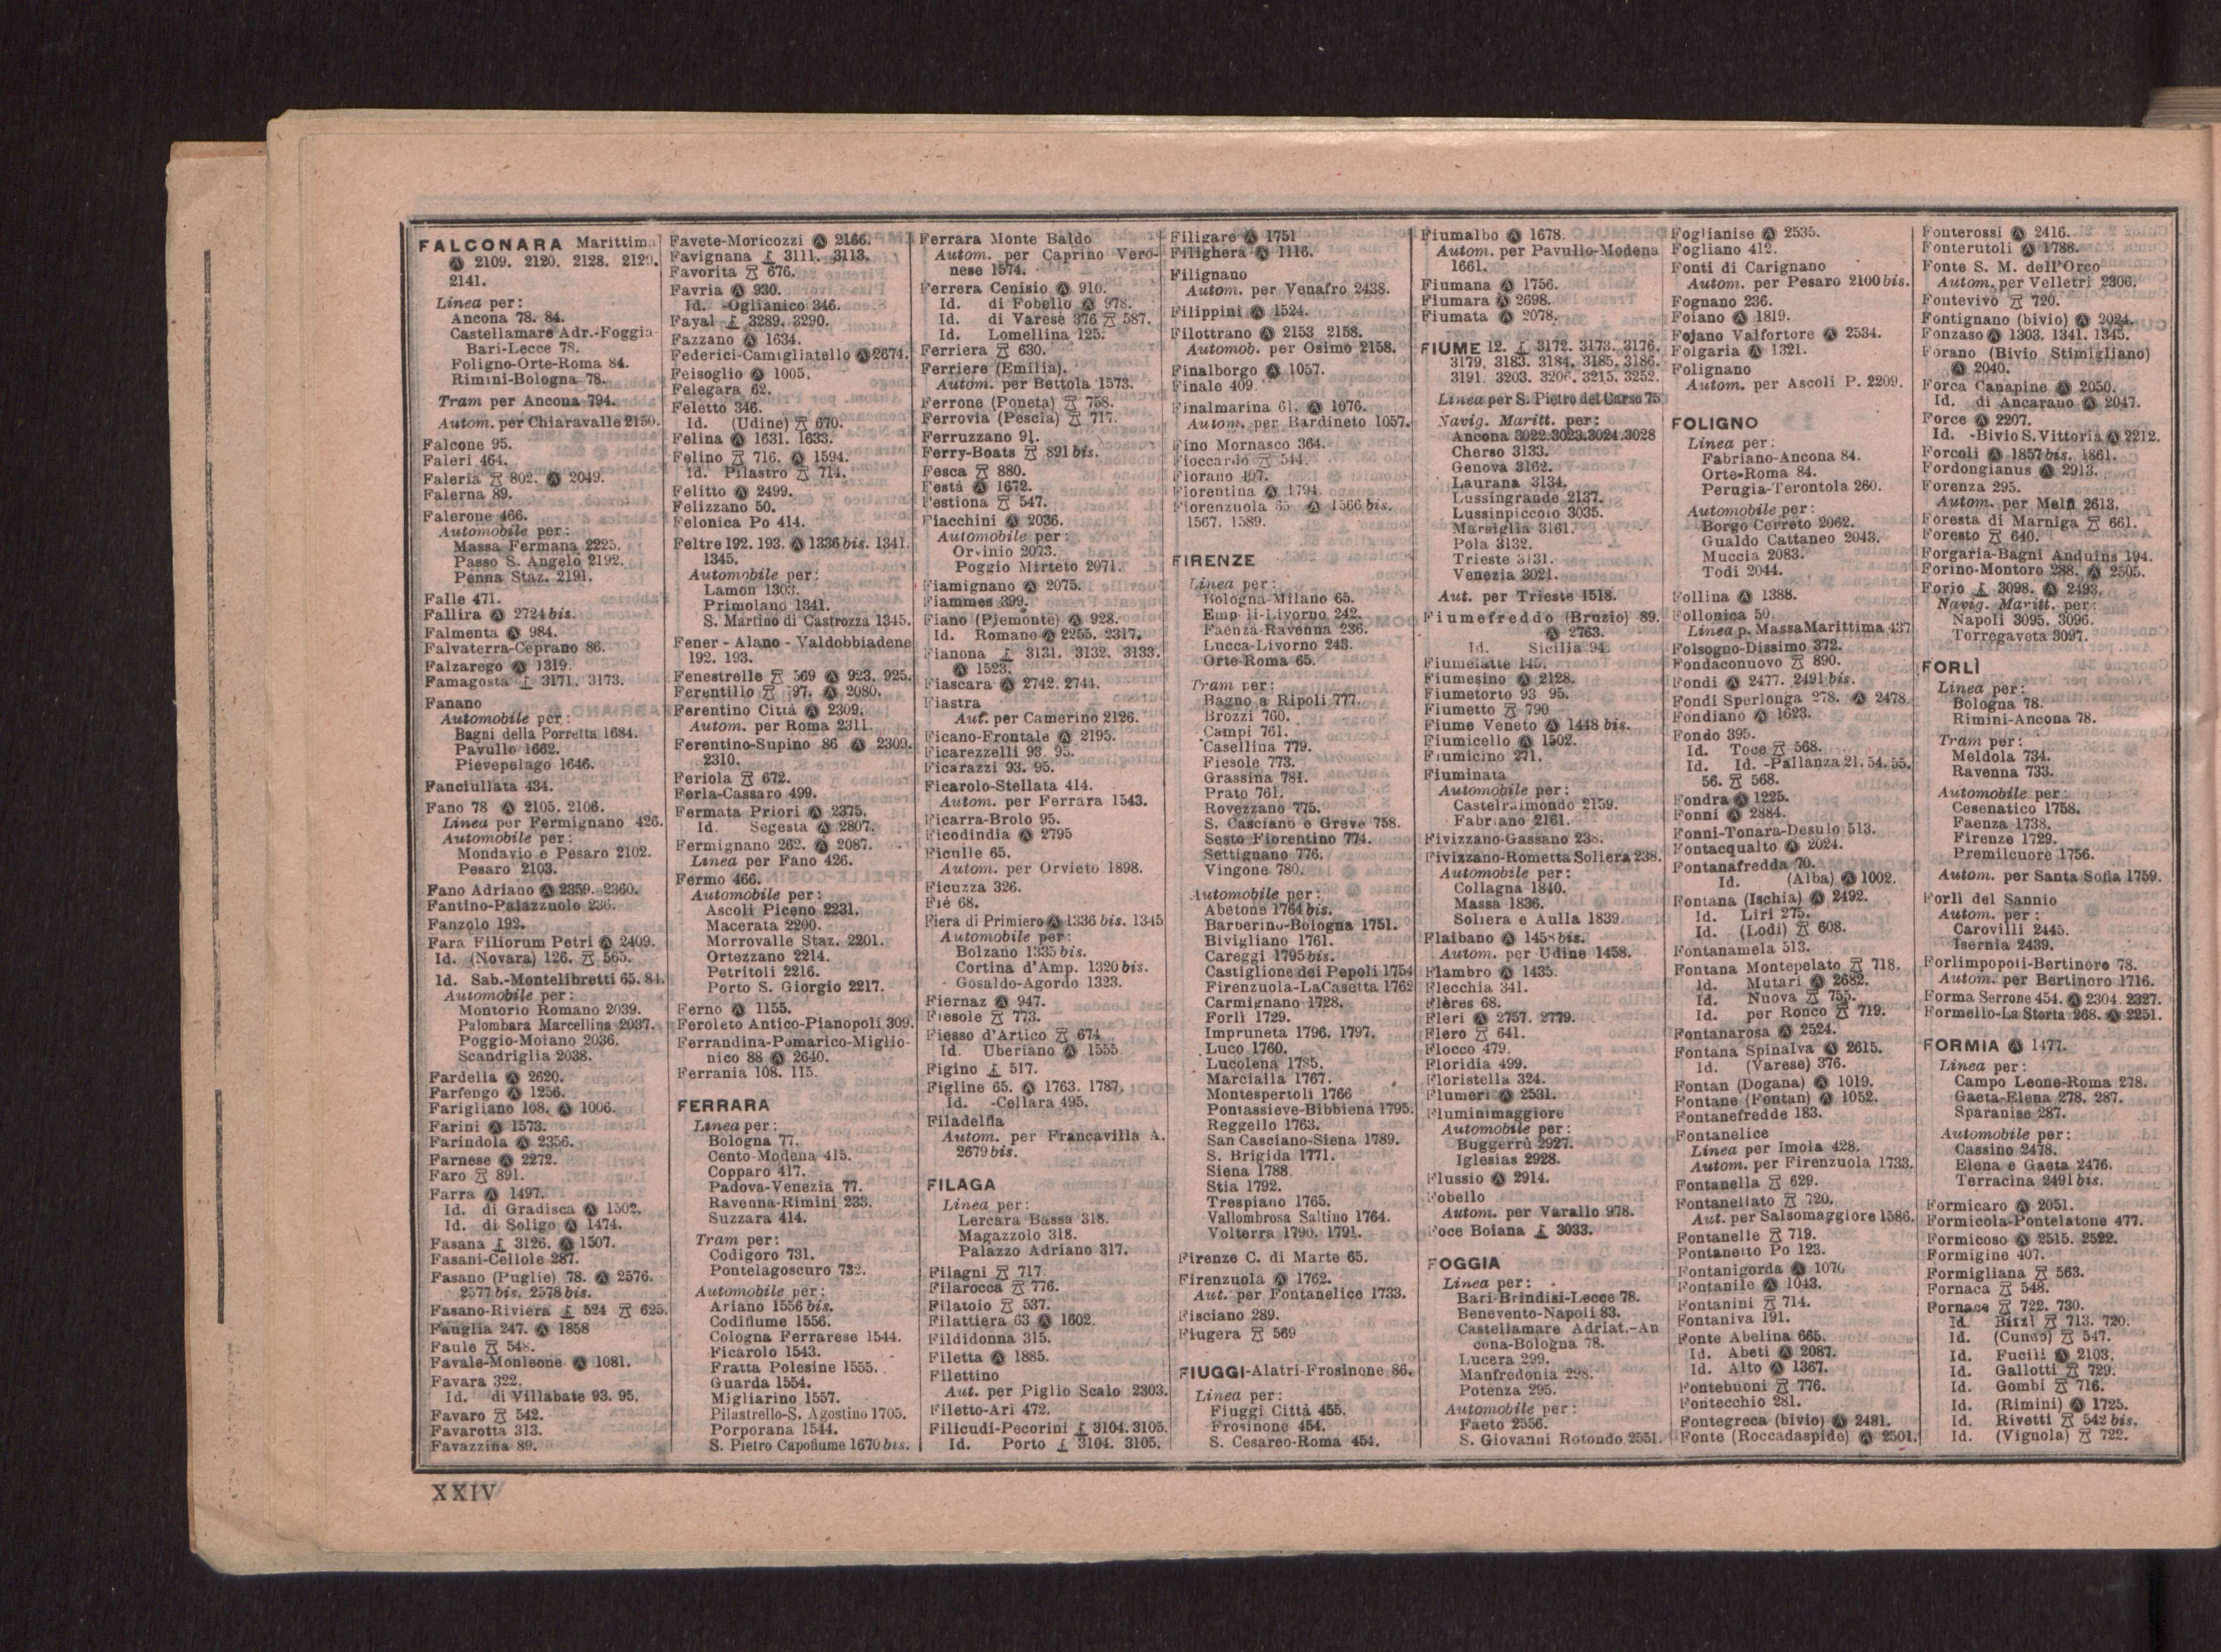 FALCONARA Marittima
Ⓐ 2109. 2120. 2128. 2129.
2141.
Linea per:
Ancona 78. 84.
Castellamare Adr.-Foggia-
Bari-Lecce 78.
Foligno-Orte-Roma 84.
Rimini-Bologna 78.
Tram per Ancona 794.
Autom. per Chiaravalle 2150.
Falcone 95.
Faleri 464.
Faleria 802. Ⓐ 2049.
Falerna 89.
Falerone 466.
Automobile per:
Massa Fermana 2225.
Passo S. Angelo 2192.
Penna Staz. 2191.
Falle 471.
Fallira Ⓐ 2724 bis.
Falmenta Ⓐ 984.
Falvaterra-Ceprano 86.
Falzarego Ⓐ 1319.
Famagosta 3171. 3173.
Fanano
Automobile per:
Bagni della Porretta 1684.
Pavullo 1662.
Pievepelago 1646.
Fanciullata 434.
Fano 78 Ⓐ 2105. 2106.
Linea per Fermignano 426.
Automobile per:
Mondavio e Pesaro 2102.
Pesaro 2103.
Fano Adriano Ⓐ 2359. 2360.
Fantino-Palazzuolo 236.
Fanzolo 192.
Fara Filiorum Petri Ⓐ 2409.
Id. (Novara) 126. 565.
Id. Sab.-Montelibretti 65. 84.
Automobile per:
Montorio Romano 2039.
Palombara Marcellina 2037.
Poggio-Moiano 2036.
Scandriglia 2038.
Fardella Ⓐ 2620.
Farfengo Ⓐ 1256.
Farigliano 108. Ⓐ 1006.
Farini Ⓐ 1573.
Farindola Ⓐ 2356.
Farnese Ⓐ 2272.
Faro 891.
Farra Ⓐ 1497.
Id. di Gradisca Ⓐ 1502.
Id. di Soligo Ⓐ 1474.
Fasana 3126. Ⓐ 1507.
Fasani-Cellole 287.
Fasano (Puglie) 78. Ⓐ 2576.
2577 bis. 2578 bis.
Fasano-Riviera 524 625.
Fauglia 247. Ⓐ 1858
Faule 548.
Favale-Monleone Ⓐ 1081.
Favara 322.
Id. di Villabate 93. 95.
Favaro 542.
Favarotta 313.
Favazzina 89.
Favete-Moricozzi Ⓐ 2166.
Favignana 3111. 3113.
Favorita 676.
Favria Ⓐ 930.
Id. -Oglianico 346.
Fayal 3289. 3290.
Fazzano Ⓐ 1634.
Federici-Camigliatello Ⓐ 2674.
Feisoglio Ⓐ 1005.
Felegara 62.
Feletto 346.
Id. (Udine) 670.
Felina Ⓐ 1631. 1633.
Felino 716. Ⓐ 1594.
Id. Pilastro 714.
Felitto Ⓐ 2499.
Felizzano 50.
Felonica Po 414.
Feltre 192. 193. Ⓐ 1336 bis. 1341.
1345.
Automobile per:
Lamon 1303.
Primolano 1341.
S. Martino di Castrozza 1345.
Fener - Alano - Valdobbiadene
192. 193.
Fenestrelle 569 Ⓐ 923. 925.
Ferentillo 797. Ⓐ 2080.
Ferentino Città Ⓐ 2309.
Autom. per Roma 2311.
Ferentino-Supino 86 Ⓐ 2309.
2310.
Feriola 672.
Ferla-Cassaro 499.
Fermata Priori Ⓐ 2375.
Id. Segesta Ⓐ 2807.
Fermignano 262. Ⓐ 2087.
Linea per Fano 426.
Fermo 466.
Automobile per:
Ascoli Piceno 2231.
Macerata 2200.
Morrovalle Staz. 2201.
Ortezzano 2214.
Petritoli 2216.
Porto S. Giorgio 2217.
Ferno Ⓐ 1155.
Feroleto Antico-Pianopoli 309.
Ferrandina-Pomarico-Miglio-
nico 88 Ⓐ 2640.
Ferrania 108. 115.
FERRARA
Linea per:
Bologna 77.
Cento-Modena 415.
Copparo 417.
Padova-Venezia 77.
Ravenna-Rimini 233.
Suzzara 414.
Tram per:
Codigoro 731.
Pontelagoscuro 732.
Automobile per:
Ariano 1556 bis.
Codifiume 1556.
Cologna Ferrarese 1544.
Ficarolo 1543.
Fratta Polesine 1555.
Guarda 1554.
Migliarino 1557.
Pilastrello-S. Agostino 1705.
Porporana 1544.
S. Pietro Capofiume 1670 bis.
Ferrara Monte Baldo
Autom. per Caprino Vero-
nese 1574.
Ferrera Cenisio Ⓐ 910.
Id. di Fobello Ⓐ 978.
Id. di Varese 376 587.
Id. Lomellina 125.
Ferriera 630.
Ferriere (Emilia).
Autom. per Bettola 1573.
Ferrone (Poneta) 758.
Ferrovia (Pescia) 717.
Ferruzzano 91.
Ferry-Boats 891 bis.
Fesca 880.
Festà Ⓐ 1672.
Festiona 547.
Fiacchini Ⓐ 2036.
Automobile per:
Orvinio 2073.
Poggio Mirteto 2071.
Fiamignano Ⓐ 2075.
Fiammes 399.
Fiano (Piemonte) Ⓐ 928.
Id. Romano Ⓐ 2255. 2317.
Fianona 3131. 3132. 3133.
Ⓐ 1523.
Fiascara Ⓐ 2742. 2744.
Fiastra
Aut. per Camerino 2126.
Ficano-Frontale Ⓐ 2195.
Ficarezzelli 93. 95.
Ficarazzi 93. 95.
Ficarolo-Stellata 414.
Autom. per Ferrara 1543.
Ficarra-Brolo 95.
Ficodindia Ⓐ 2795
Ficulle 65.
Autom. per Orvieto 1898.
Ficuzza 326.
Fié 68.
Fiera di Primiero Ⓐ 1336 bis. 1345
Automobile per:
Bolzano 1335 bis.
Cortina d'Amp. 1320 bis.
Gosaldo-Agordo 1323.
Fiernaz Ⓐ 947.
Fiesole 773.
Fiesso d'Artico 674
Id. Uberiano Ⓐ 1555
Figino 517.
Figline 65. Ⓐ 1763. 1787.
Id. -Cellara 495.
Filadelfia
Autom. per Francavilla A.
2679 bis.
FILAGA
Linea per:
Lercara Bassa 318.
Magazzolo 318.
Palazzo Adriano 317.
Filagni 717
Filarocca 776.
Filatoio 537.
Filattiera 63 Ⓐ 1602.
Fildidonna 315.
Filetta Ⓐ 1885.
Filettino
Aut. per Piglio Scalo 2303.
Filetto-Ari 472.
Filicudi-Pecorini 3104. 3105.
Id. Porto 3104. 3105.
Filigare Ⓐ 1751
Filighera Ⓐ 1116.
Filignano
Autom. per Venafro 2438.
Filippini Ⓐ 1524.
Filottrano Ⓐ 2153 2158.
Automob. per Osimo 2158.
Finalborgo Ⓐ 1057.
Finale 409.
Finalmarina 61. Ⓐ 1076.
Autom. per Bardineto 1057.
Fino Mornasco 364.
Fioccardo 544.
Fiorano 407.
Fiorentina Ⓐ 1794.
Fiorenzuola 65 Ⓐ 1566 bis.
1567. 1589.
FIRENZE
Linea per:
Bologna-Milano 65.
Empoli-Livorno 242.
Faenza-Ravenna 236.
Lucca-Livorno 243.
Orte-Roma 65.
Tram per:
Bagno a Ripoli 777.
Brozzi 760.
Campi 761.
Casellina 779.
Fiesole 773.
Grassina 781.
Prato 761.
Rovezzano 775.
S. Casciano e Greve 758.
Sesto Fiorentino 774.
Settignano 776.
Vingone 780.
Automobile per:
Abetone 1764 bis.
Barberino-Bologna 1751.
Bivigliano 1761.
Careggi 1795 bis.
Castiglione dei Pepoli 1754
Firenzuola-La Casetta 1762
Carmignano 1728.
Forlì 1729.
Impruneta 1796. 1797.
Luco 1760.
Lucolena 1785.
Marcialla 1767.
Montespertoli 1766
Pontassieve-Bibbiena 1795.
Reggello 1763.
San Casciano-Siena 1789.
S. Brigida 1771.
Siena 1788.
Stia 1792.
Trespiano 1765.
Vallombrosa Saltino 1764.
Volterra 1790. 1791.
Firenze C. di Marte 65.
Firenzuola Ⓐ 1762.
Aut. per Fontanelice 1733.
Fisciano 289.
Fiugera 569
FIUGGI-Alatri-Frosinone 86.
Linea per:
Fiuggi Città 455.
Frosinone 454.
S. Cesareo-Roma 454.
Fiumalbo Ⓐ 1678.
Autom. per Pavullo-Modena
1661.
Fiumana Ⓐ 1756.
Fiumara Ⓐ 2698.
Fiumata Ⓐ 2078.
FIUME 12. 3172. 3173. 3176.
3179. 3183. 3184. 3185. 3186.
3191. 3203. 3206. 3215. 3252.
Linea per S. Pietro del Carso 75
Navig. Maritt. per:
Ancona 3022.3023.3024.3028
Cherso 3133.
Genova 3162.
Laurana 3134.
Lussingrande 2137.
Lussinpiccolo 3035.
Marsiglia 3161.
Pola 3132.
Trieste 3131.
Venezia 3021.
Aut. per Trieste 1518.
Fiumefreddo (Bruzio) 89.
Ⓐ 2763.
Id. Sicilia 94.
Fiumelatte 145.
Fiumesino Ⓐ 2128.
Fiumetorto 93 95.
Fiumetto 790
Fiume Veneto Ⓐ 1448 bis.
Fiumicello Ⓐ 1502.
Fiumicino 271.
Fiuminata
Automobile per:
Castelraimondo 2159.
Fabriano 2161.
Fivizzano-Gassano 238.
Fivizzano-Rometta Soliera 238.
Automobile per:
Collagna 1840.
Massa 1836.
Soliera e Aulla 1839
Flaibano Ⓐ 1458 bis.
Autom. per Udine 1458.
Flambro Ⓐ 1435.
Flecchia 341.
Flères 68.
Fleri Ⓐ 2757. 2779.
Flero 641.
Flocco 479.
Floridia 499.
Floristella 324.
Flumeri Ⓐ 2531.
Fluminimaggiore
Automobile per:
Buggerrù 2927.
Iglesias 2928.
Flussio Ⓐ 2914.
Fobello
Autom. per Varallo 978.
Foce Boiana 3033.
FOGGIA
Linea per:
Bari-Brindisi-Lecce 78.
Benevento-Napoli 83.
Castellamare Adriat.-An
cona-Bologna 78.
Lucera 299.
Manfredonia 298.
Potenza 295.
Automobile per:
Faeto 2556.
S. Giovanni Rotondo 2551.
Foglianise Ⓐ 2535.
Fogliano 412.
Fonti di Carignano
Autom. per Pesaro 2100 bis.
Fognano 236.
Foiano Ⓐ 1819.
Fojano Valfortore Ⓐ 2534.
Folgaria Ⓐ 1321.
Folignano
Autom. per Ascoli P. 2209.
FOLIGNO
Linea per:
Fabriano-Ancona 84.
Orte-Roma 84.
Perugia-Terontola 260.
Automobile per:
Borgo Cerreto 2062.
Gualdo Cattaneo 2043.
Muccia 2083.
Todi 2044.
Follina Ⓐ 1388.
Follonica 59
Linea p. Massa Marittima 437
Folsogno-Dissimo 372.
Fondaconuovo 890.
Fondi Ⓐ 2477. 2491 bis.
Fondi Sperlonga 278. Ⓐ 2478
Fondiano Ⓐ 1623.
Fondo 395.
Id. Toce 568.
Id. Id. -Pallanza 21. 54. 55.
56. 568.
Fondra Ⓐ 1225.
Fonni Ⓐ 2884.
Fonni-Tonara-Desulo 513.
Fontacqualto Ⓐ 2024.
Fontanafredda 70.
Id. (Alba) Ⓐ 1002.
Fontana (Ischia) Ⓐ 2492.
Id. Liri 275.
Id. (Lodi) 608.
Fontanamela 513.
Fontana Montepelato 718.
Id. Mutari Ⓐ 2682.
Id. Nuova 755.
Id. per Ronco 719.
Fontanarosa Ⓐ 2524.
Fontana Spinalva Ⓐ 2615.
Id. (Varese) 376.
Fontan (Dogana) Ⓐ 1019.
Fontane (Fontan) Ⓐ 1052.
Fontanefredde 183.
Fontanelice
Linea per Imola 428.
Autom. per Firenzuola 1733.
Fontanella 629.
Fontanellato 720.
Aut. per Salsomaggiore 1586.
Fontanelle 719.
Fontanetto Po 123.
Fontanigorda Ⓐ 1076
Fontanile Ⓐ 1043.
Fontanini 714.
Fontaniva 191.
Fonte Abelina 665.
Id. Abeti Ⓐ 2087.
Id. Alto Ⓐ 1367.
Fontebuoni 776.
Fontecchio 281.
Fontegreca (bivio) Ⓐ 2481.
Fonte (Roccadaspide) Ⓐ 2501.
Fonterossi Ⓐ 2416.
Fonterutoli Ⓐ 1788.
Fonte S. M. dell'Orco
Autom. per Velletri 2306.
Fontevivo 720.
Fontignano (bivio) Ⓐ 2024.
Fonzaso Ⓐ 1303. 1341. 1345.
Forano (Bivio Stimigliano)
Ⓐ 2040.
Forca Canapine Ⓐ 2050.
Id. di Ancarano Ⓐ 2047.
Force Ⓐ 2207.
Id. -Bivio S. Vittoria Ⓐ 2212.
Forcoli Ⓐ 1857 bis. 1861.
Fordongianus Ⓐ 2913.
Forenza 295.
Autom. per Melfi 2613.
Foresta di Marniga 661.
Foresto 640.
Forgaria-Bagni Anduins 194.
Forino-Montoro 288. Ⓐ 2505.
Forio 3098. Ⓐ 2493.
Navig. Maritt. per:
Napoli 3095. 3096.
Torregaveta 3097.
FORLÌ
Linea per:
Bologna 78.
Rimini-Ancona 78.
Tram per:
Meldola 734.
Ravenna 733.
Automobile per:
Cesenatico 1758.
Faenza 1738.
Firenze 1729.
Premilcuore 1756.
Autom. per Santa Sofia 1759.
Forlì del Sannio
Autom. per:
Carovilli 2445.
Isernia 2439.
Forlimpopoli-Bertinoro 78.
Autom. per Bertinoro 1716.
Forma Serrone 454. Ⓐ 2304. 2327.
Formello-La Storta 268. Ⓐ 2251.
FORMIA Ⓐ 1477.
Linea per:
Campo Leone-Roma 278.
Gaeta-Elena 278. 287.
Sparanise 287.
Automobile per:
Cassino 2478.
Elena e Gaeta 2476.
Terracina 2491 bis.
Formicaro Ⓐ 2051.
Formicola-Pontelatone 477.
Formicoso Ⓐ 2515. 2522.
Formigine 407.
Formigliana 563.
Fornaca 548.
Fornace 722. 730.
Id. Bizzi 713. 720.
Id. (Cuneo) 547.
Id. Fucili Ⓐ 2103.
Id. Gallotti 729.
Id. Gombi 716.
Id. (Rimini) Ⓐ 1725.
Id. Rivetti 542 bis.
Id. (Vignola) 722.
XXIV